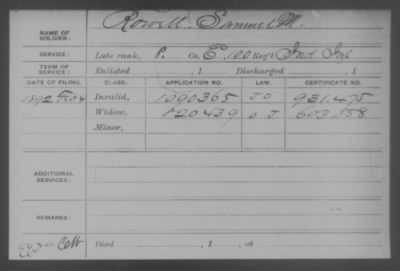 NAME OF SOLDIER: Rowell, Samuel M.
SERVICE: Late rank, P. Co. E, 100 Reg't Ind Inf
TERM OF SERVICE: Enlisted , 1 Discharged , 1
DATE OF FILING. CLASS. APPLICATION NO. LAW. CERTIFICATE NO.
1892 Invalid, 1090365 931.475
Widow, 820439 603.858
Minor,
ADDITIONAL SERVICES:
REMARKS:
Died , 1 , at